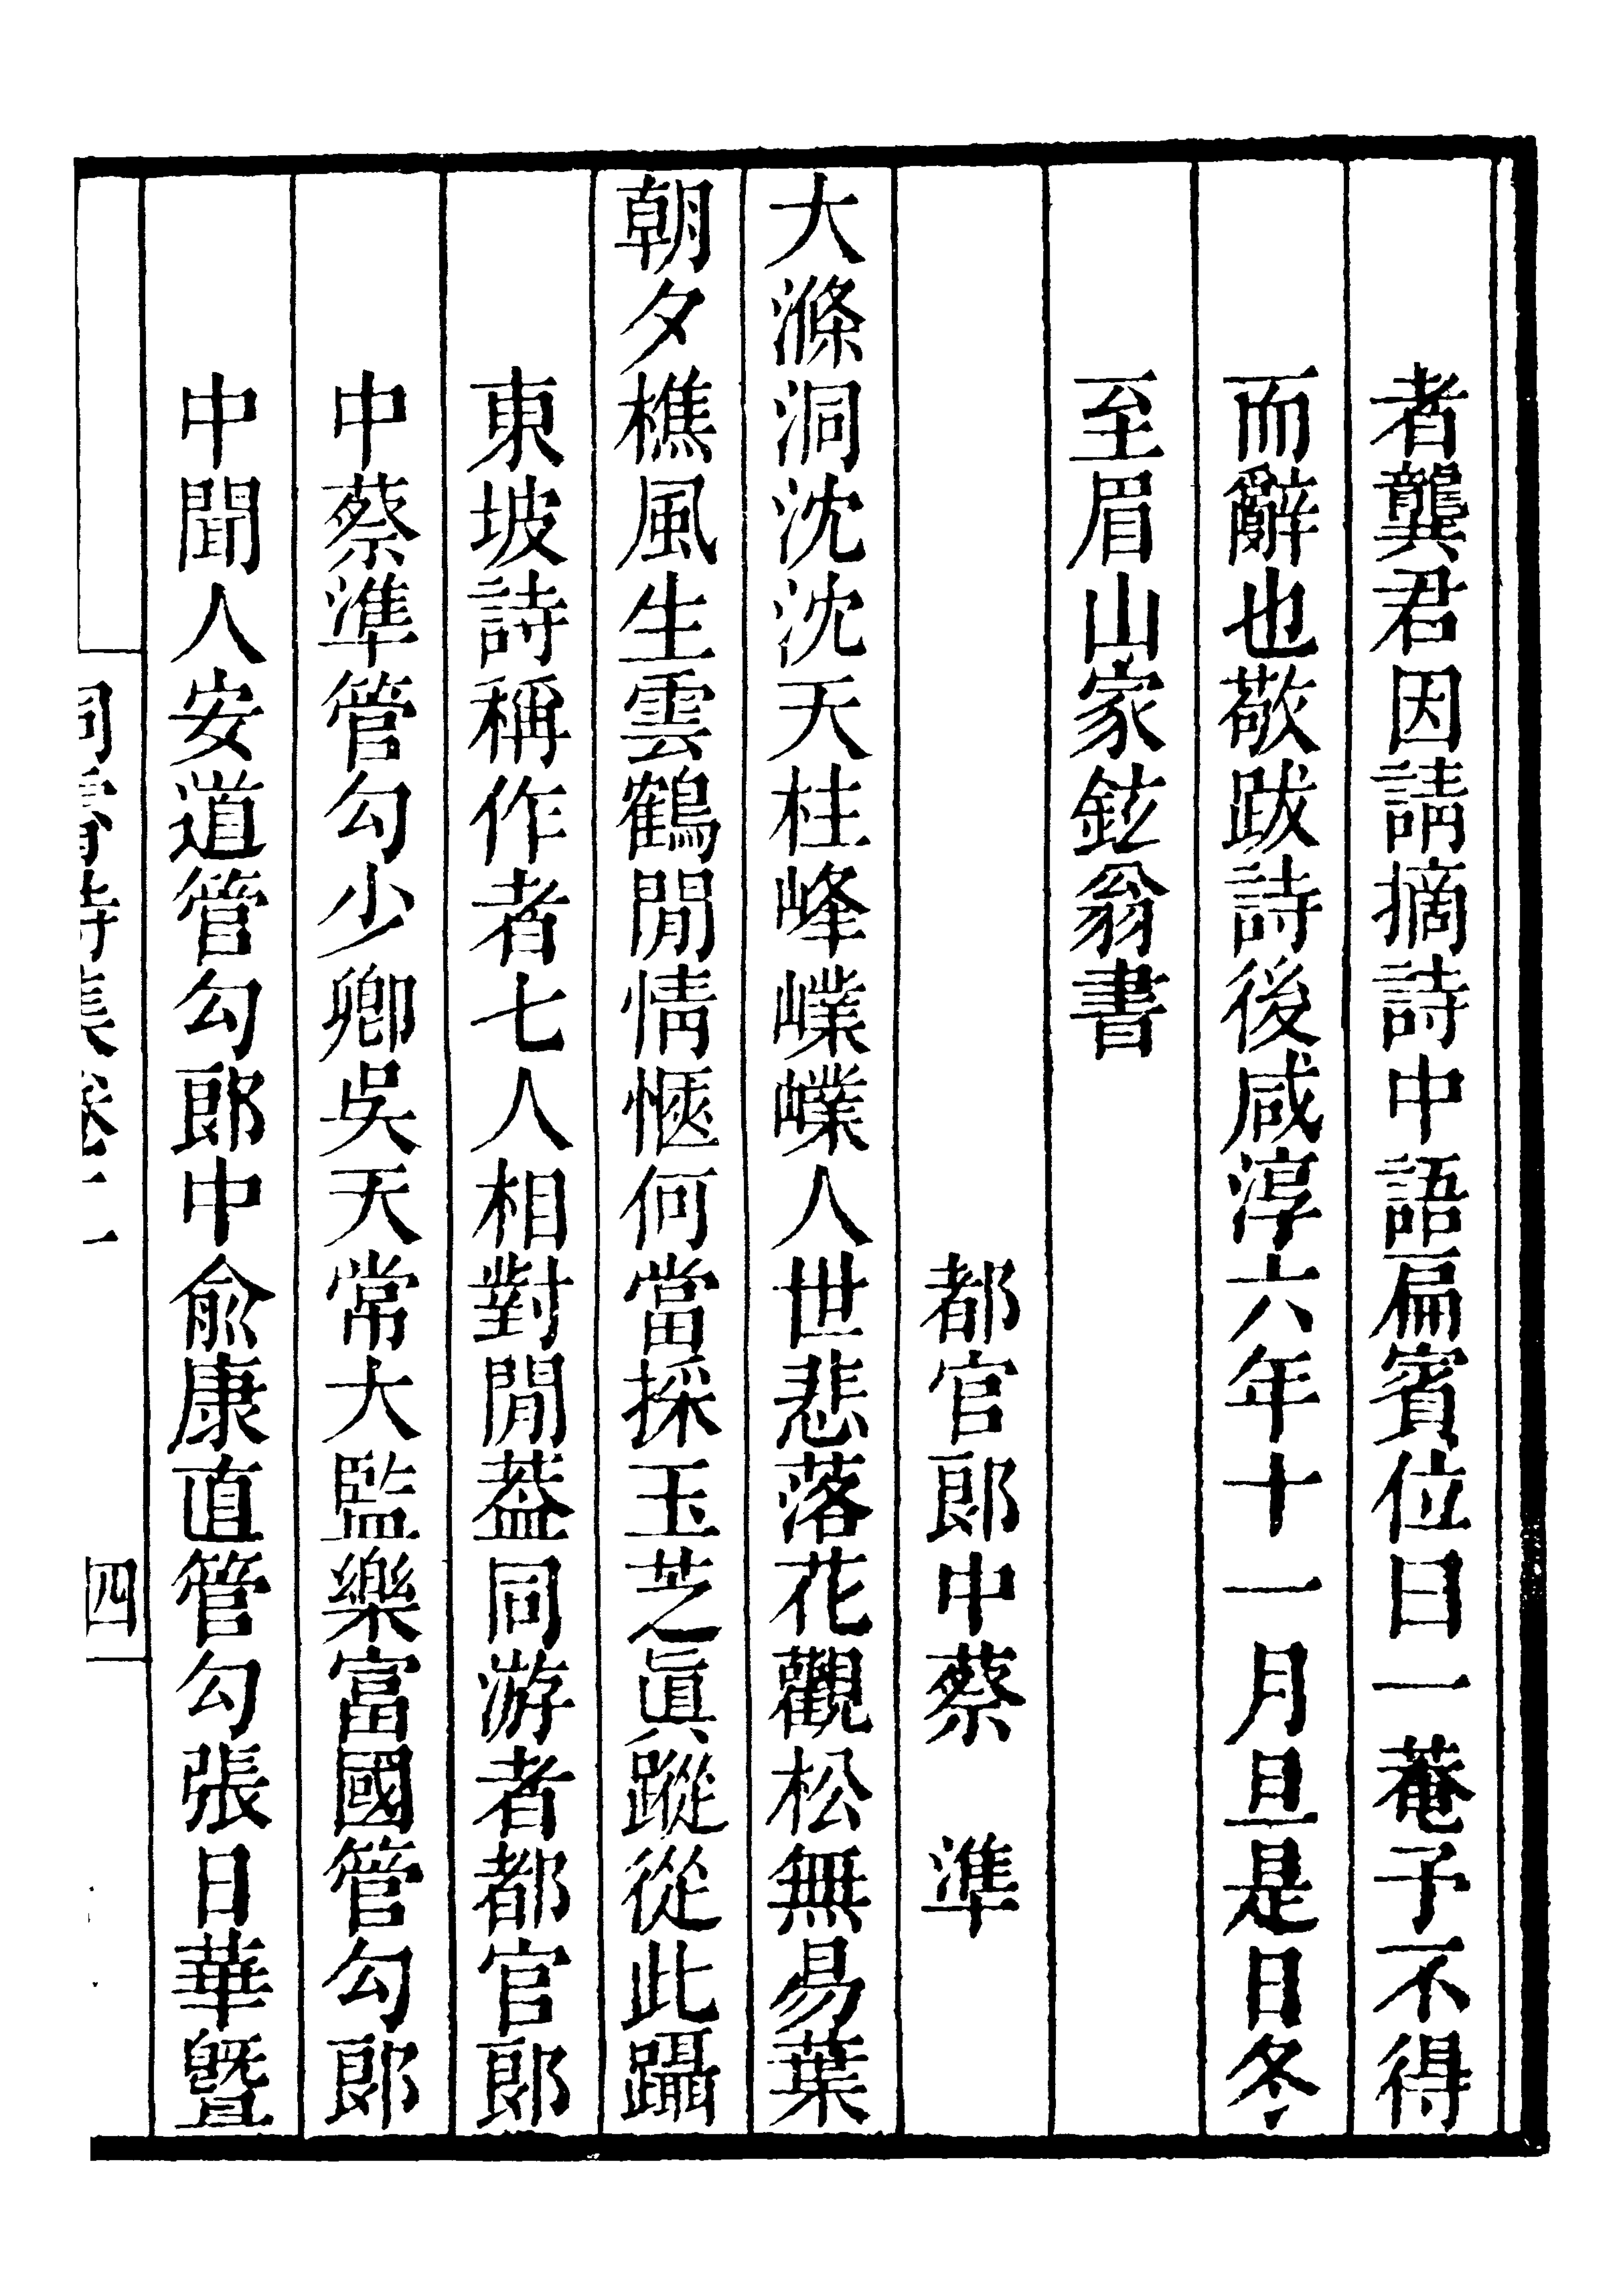 者龔君因請摘詩中語扁賓位曰一菴予不得
而辭也敬跋詩後咸淳六年十一月旦是日冬
至眉山家鉉翁書
都官郎中蔡　準
大滌洞沈沈天柱峰嶫嶫人世悲落花觀松無易葉
朝夕樵風生雲鶴閒情愜何當採玉芝眞蹤從此躡
東坡詩稱作者七人相對閒葢同游者都官郎
中蔡準管勾少卿吳天常大監樂富國管勾郎
中聞人安道管勾郎中俞康直管勾張日華曁
洞霄詩集卷二
四